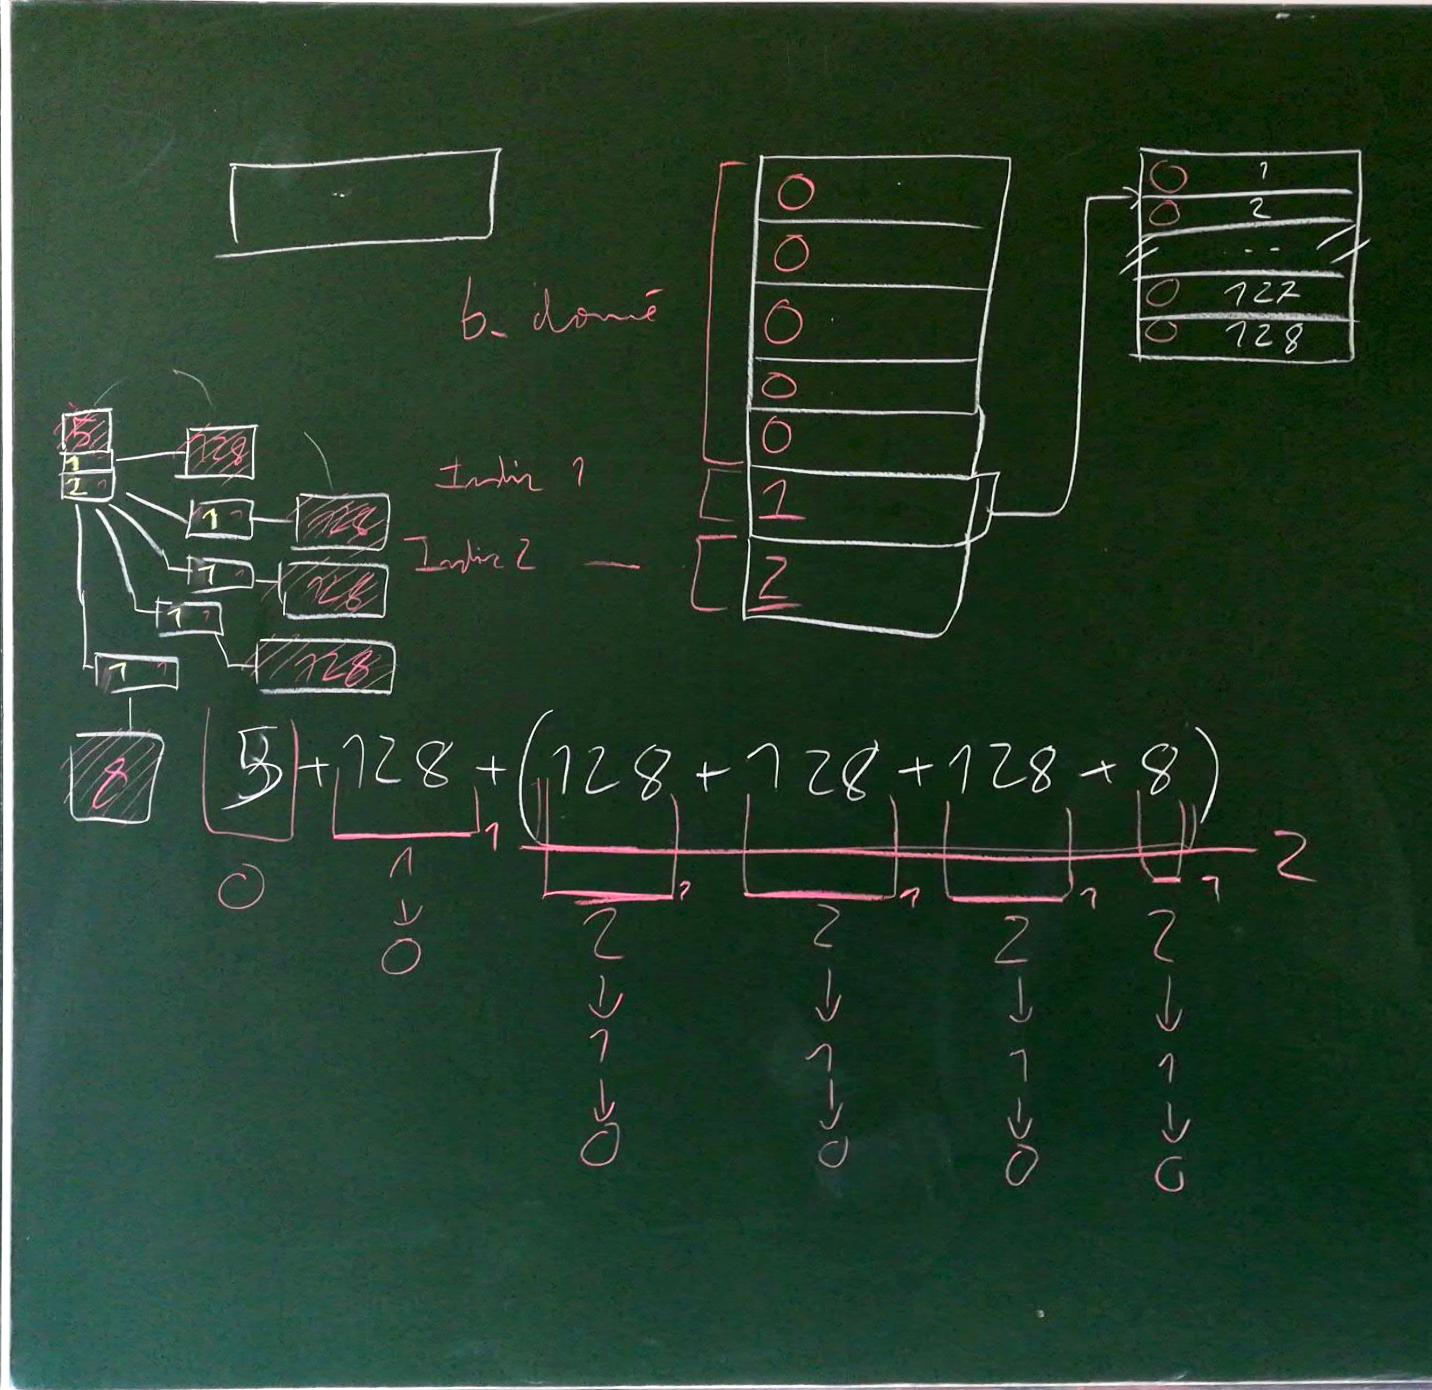 0 1
0 2
0 ...
0 127
0 128
0
0
b. donné
0
0
0
Indir 1
1
Indir 2 —
2
5
1
2
128
1
128
1
128
1
128
1
8
5 + 128 + (128 + 128 + 128 + 8)
1 1 1 1 1 2
0 1 2 2 2 2
↓ ↓ ↓ ↓ ↓
0 1 1 1 1
↓ ↓ ↓ ↓
0 0 0 0